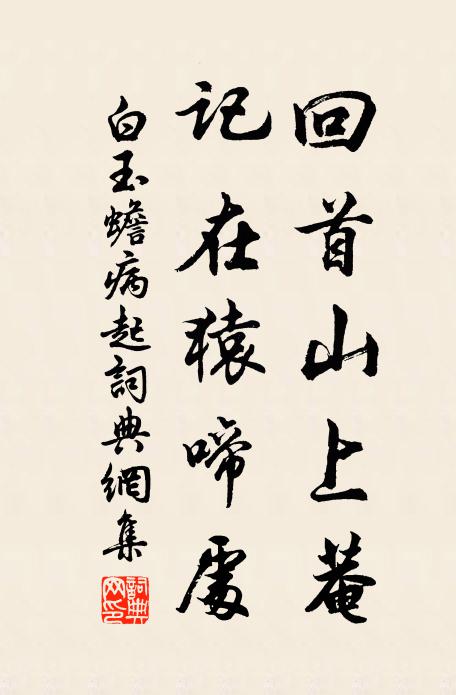 回首山上菴
記在猿啼處
白玉蟾病起詞典網集
詞典網印